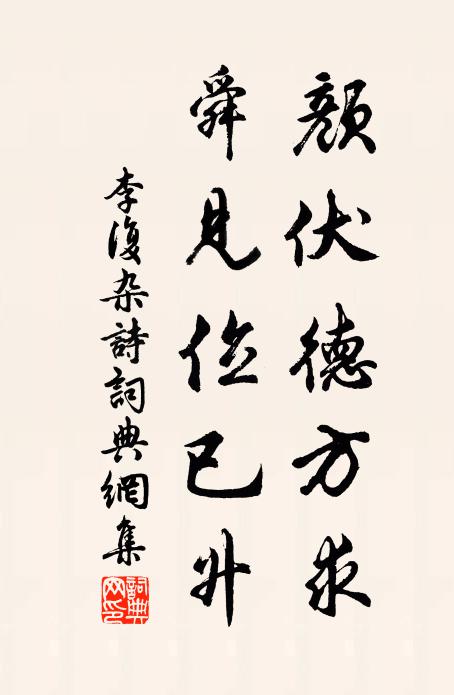 顔伏德方求
舜見位已升
李復杂詩詞典網集
詞典网印